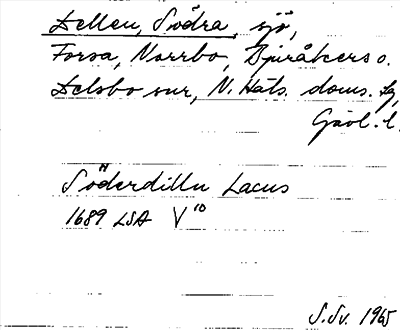 Dellen, Södra, sjö,
Forsa, Norrbo, Bjuråkers o.
Delsbo snr, N. Häls. doms. sg,
Gävl. l.
Söderdilln Lacus
1689 LSA V¹⁰
S. Sv. 1965